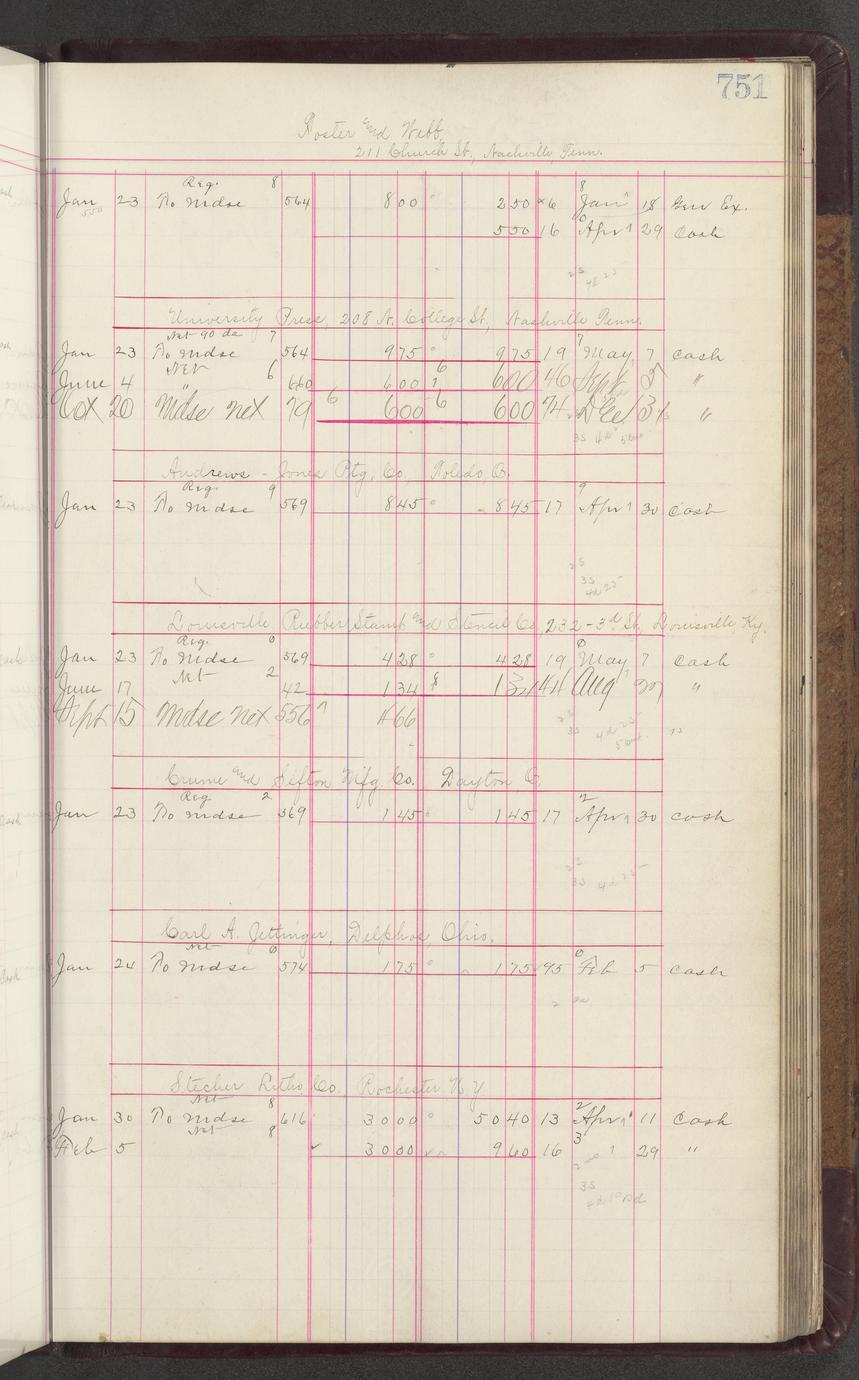 751
Foster and Webb,
211 Church St, Nashville, Tenn.
Reg. 8 8
Jan 23 To Mdse 564 800 250 ×6 Jan 18 Gen Ex.
550 550 16 Apr 29 Cash
University Press, 208 N. College St, Nashville Tenn.
Net 90 da 7 7
Jan 23 To Mdse 564 975 975 19 May 7 cash
Net 6 6
June 4 " 660 600 600 46 Sept "
Oct 20 Mdse net 79 6 600 6 600 74 Dec 31 "
Andrews-Jones Ptg. Co, Toledo, O.
Reg. 9 9
Jan 23 To Mdse 569 845 845 17 Apr 30 Cash
Louisville Rubber Stamp and Stencil Co, 232-3d St, Louisville, Ky.
Reg. 0 0
Jan 23 To Mdse 569 428 428 19 May 7 Cash
Net 2 8
June 17 42 134 134 44 Aug "
Sept 15 Mdse net 556 466
Crume and Sefton Mfg. Co. Dayton O.
Reg 2 2
Jan 23 To Mdse 569 145 145 17 Apr 30 cash
Carl A. Jettinger, Delphos, Ohio.
Net 0 0
Jan 24 To Mdse 574 175 175 95 Feb 5 cash
Stecher Litho. Co., Rochester N.Y
Net 8 2
Jan 30 To Mdse 616 3000 5040 13 Apr 11 Cash
Net 8 3
Feb 5 ✓ 3000 960 16 29 "